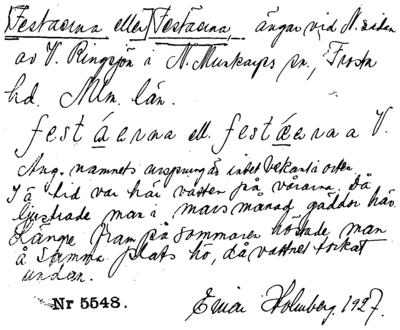 Festaorna eller Festäorna, ängar vid N. sidan
av V. Ringsjön i N. Munkarps sn., Frosta
hd. Mlm. län.
festáerna ell. festǽerna a V.
Ang. namnets ursprung är intet bekant i orten.
I ä tid var här vatten på vårarna. Då
ljustrade man i mars månad gäddor här.
Längre fram på sommaren höstade man
å samma plats hö, då vattnet torkat
undan.
Nr 5548. Einar Holmberg. 1927.